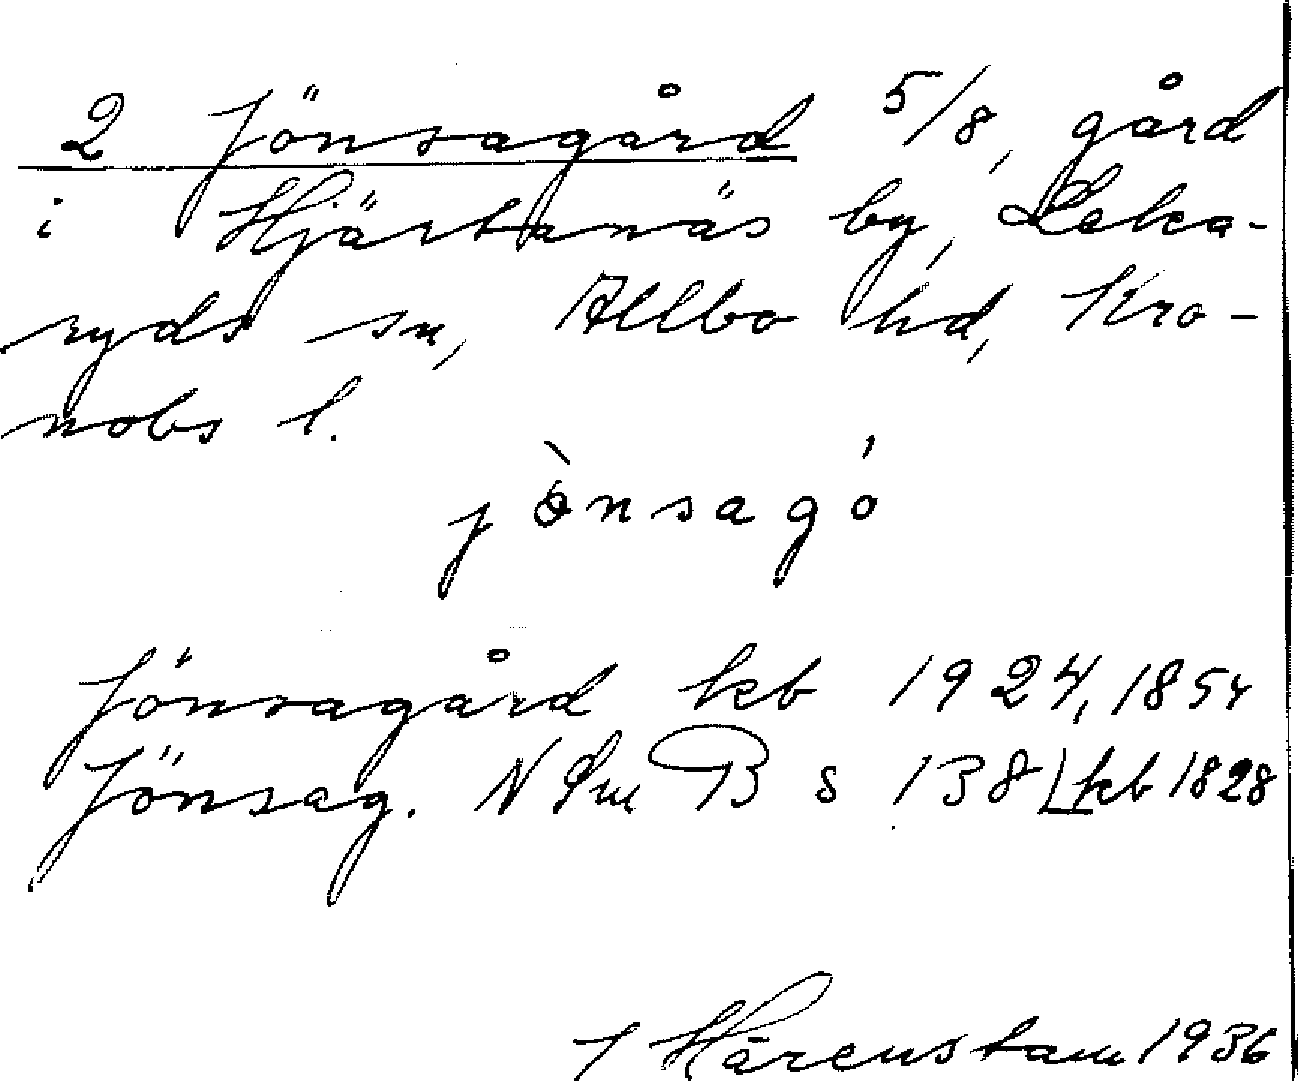 2 Jönsagård 5/8, gård
i Hjärtanäs by, Leka-
ryds sn, Allbo hd, Kro-
nobs l.
jònsagó
Jönsagård kb 1924, 1854
Jönsag. N Sm B s 138 kb 1828
J Hårenstam 1936